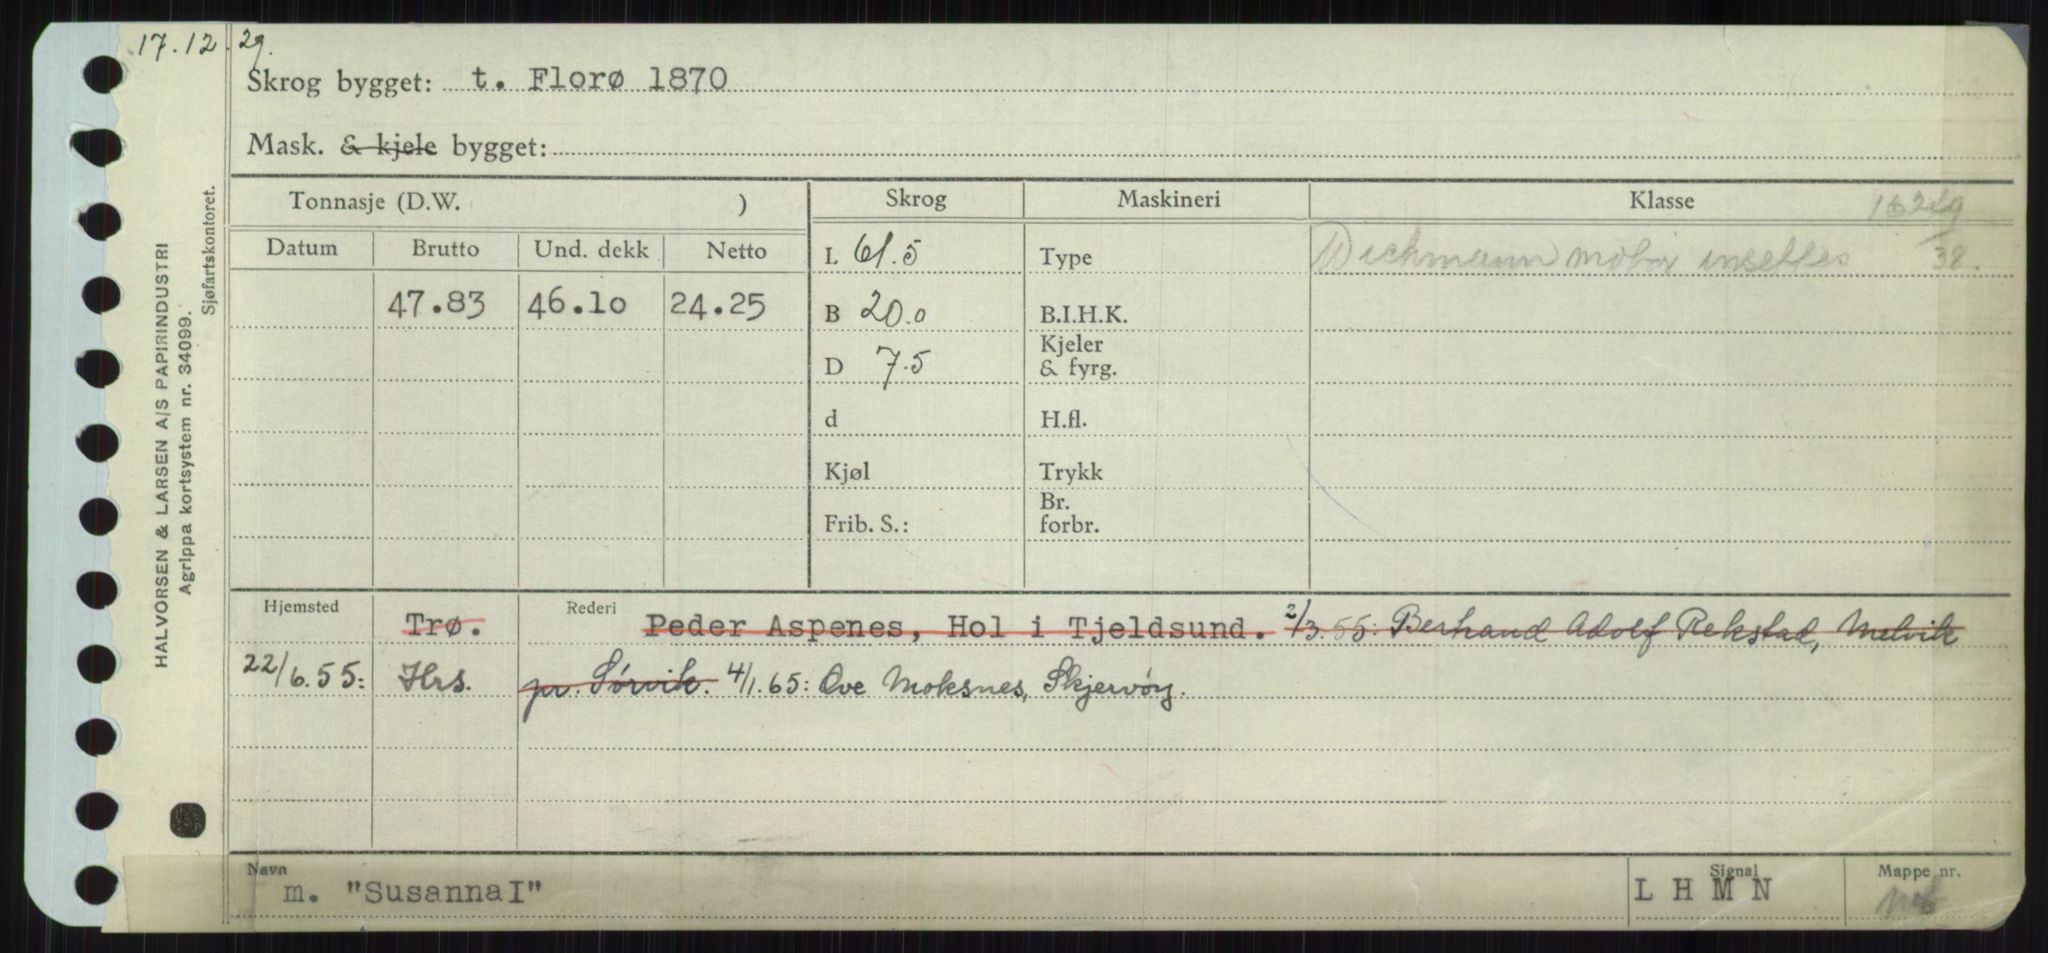 17.12.29.
Skrog bygget: t. Florø 1870
Mask. & kjele bygget:
HALVORSEN & LARSEN A/S PAPIRINDUSTRI
Agrippa kortsystem nr. 34099.
Sjøfartskontoret.
Tonnasje (D.W. ) Skrog Maskineri Klasse
Datum Brutto Und. dekk Netto L 61.5 Type Wichmann motor insettes 38.
47.83 46.10 24.25 B 20.0 B.I.H.K.
D 7.5 Kjeler & fyrg.
d H.fl.
Kjøl Trykk
Frib. S.: Br. forbr.
Hjemsted Trø. Rederi Peder Aspenes, Hol i Tjeldsund. 2/3.55: Berhand Adolf Rekstad, Melvik
22/6.55: Hrs. pr. Sørvik. 4/1.65: Ove Moksnes, Skjervøy.
Navn Signal Mappe nr.
m. "Susanna I" L H M N